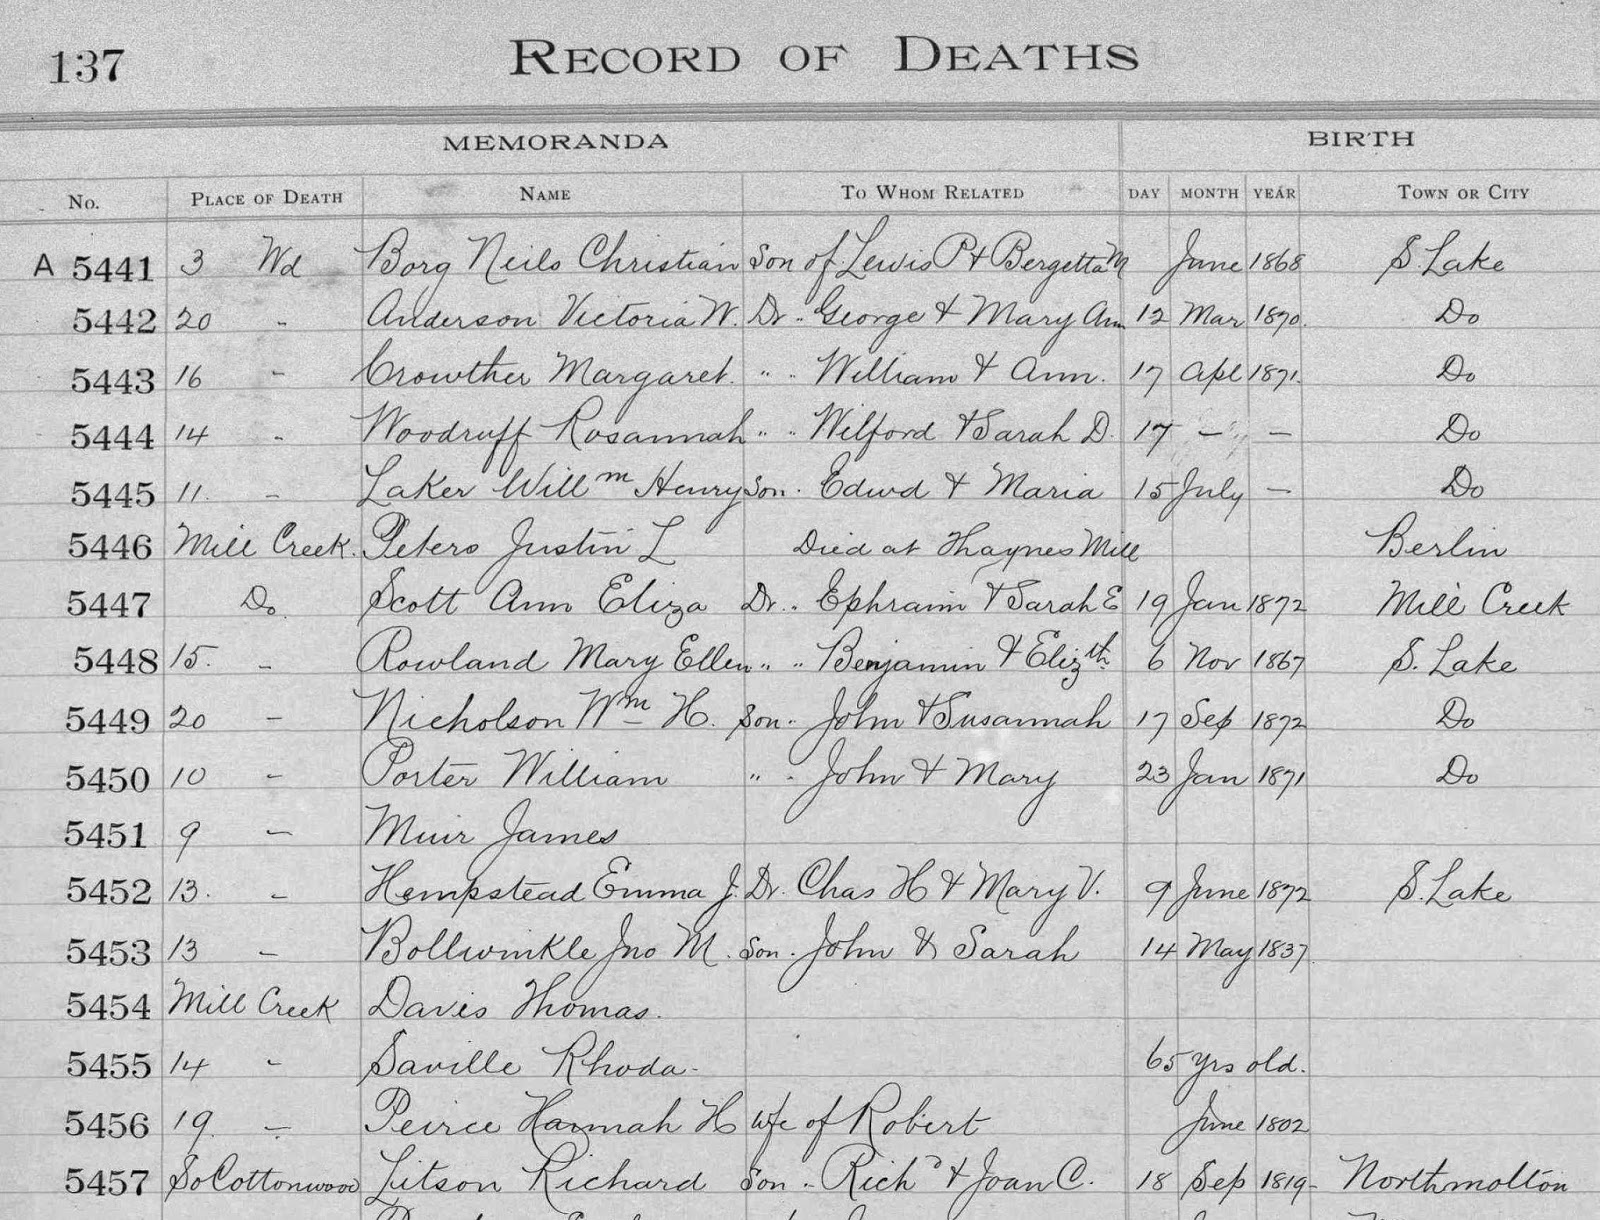 137 RECORD OF DEATHS
MEMORANDA BIRTH
No. PLACE OF DEATH NAME TO WHOM RELATED DAY MONTH YEAR TOWN OR CITY
A 5441 3 Wd Borg Neils Christian Son of Lewis P & Bergetta M June 1868 S. Lake
5442 20 " Anderson Victoria W. Dr. " George & Mary Ann 12 Mar 1870. Do
5443 16 " Crowther Margaret. " " William & Ann. 17 Apl 1871. Do
5444 14 " Woodruff Rosannah " " Wilford & Sarah D. 17 — — Do
5445 11. " Laker Willm Henry Son " Edwd & Maria 15 July — Do
5446 Mill Creek. Peters Justin L Died at Thaynes Mill Berlin
5447 Do Scott Ann Eliza Dr. " Ephraim & Sarah E 19 Jan 1872 Mill Creek
5448 15. " Rowland Mary Ellen " " Benjamin & Elizth 6 Nov 1867 S. Lake
5449 20 " Nicholson Wm H. Son " John & Susannah 17 Sep 1872 Do
5450 10 " Porter William " " John & Mary 23 Jan 1871 Do
5451 9 " Muir James
5452 13. " Hempstead Emma J. Dr. Chas H & Mary V. 9 June 1872 S. Lake
5453 13 " Bollwinkle Jno M. Son. John & Sarah 14 May 1837.
5454 Mill Creek Davis Thomas.
5455 14 " Saville Rhoda. 65 yrs old.
5456 19. " Peirce Hannah H wfe of Robert June 1802
5457 So Cottonwood Litson Richard Son " Richd & Joan C. 18 Sep 1819- Northmolton